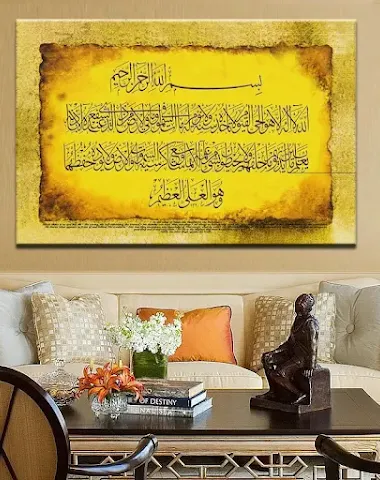 بسم الله الرحمن الرحيم
الله لا إله إلا هو الحي القيوم لا تأخذه سنة ولا نوم له ما في السموات وما في الأرض من ذا الذي يشفع عنده إلا بإذنه
يعلم ما بين أيديهم وما خلفهم ولا يحيطون بشيء من علمه إلا بما شاء وسع كرسيه السموات والأرض ولا يؤده حفظهما
وهو العلي العظيم
OF DESTINY